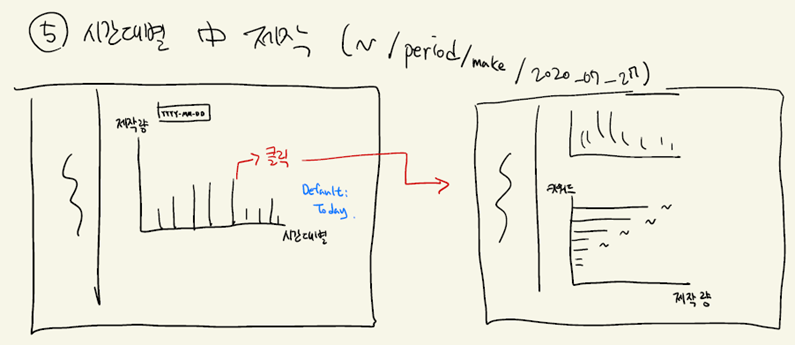 ⑤ 시간대별 中 제작 (~/period/make/2020-07-27)
YYYY-MM-DD
제작량
클릭
Default:
Today.
시간대별
키워드
~
~
~
~
제작량